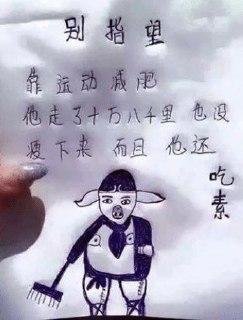 别指望
靠运动减肥
他走了十万八千里也没
瘦下来 而且 他还
吃素